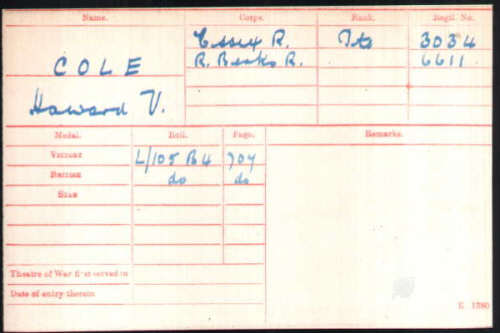 Name. Corps. Rank. Regtl. No.
COLE Essex R. Pte 3034
Howard V. R. Berks R. 6611
Medal. Roll. Page. Remarks.
VICTORY L/105 B4 704
BRITISH do do
STAR
Theatre of War first served in
Date of entry therein
K 1380